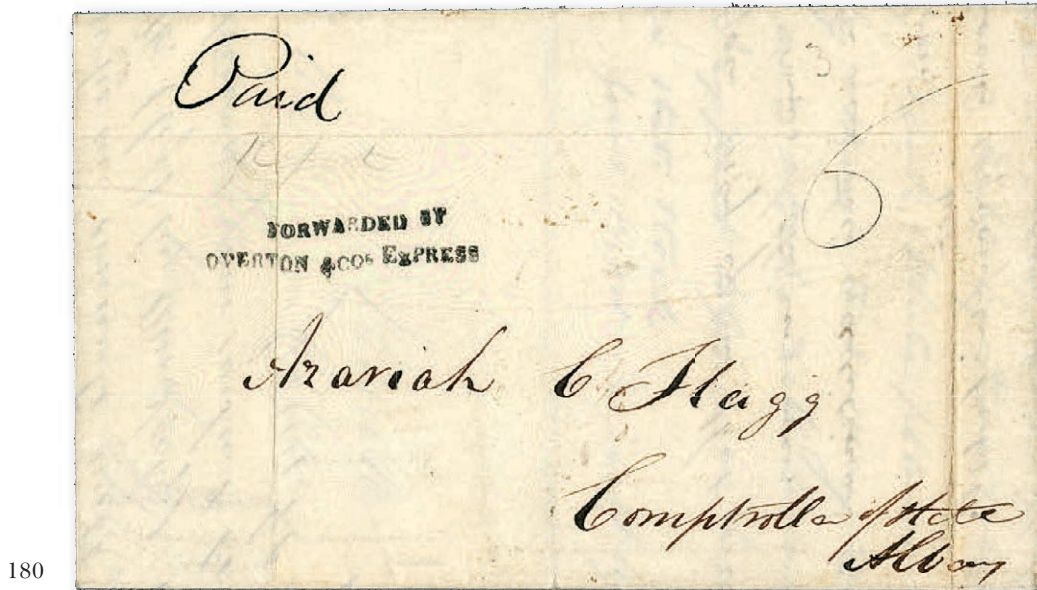 3
Paid
6
FORWARDED BY
OVERTON & COs EXPRESS
Azariah C Flagg
Comptroller of State
Albany
180